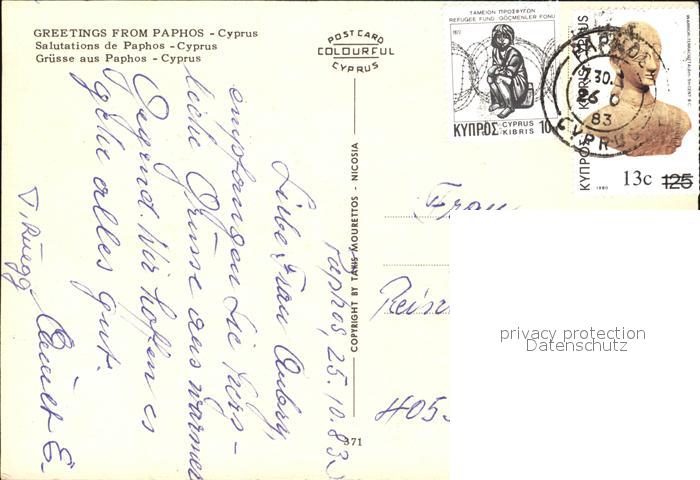 GREETINGS FROM PAPHOS - Cyprus
Salutations de Paphos - Cyprus
Grüsse aus Paphos - Cyprus
POST CARD
COLOURFUL
CYPRUS
ΤΑΜΕΙΟΝ ΠΡΟΣΦΥΓΩΝ
REFUGEE FUND GÖÇMENLER FONU
1977
ΚΥΠΡΟΣ CYPRUS KIBRIS 10
ΚΥΠΡΟΣ KIBRIS CYPRUS
1980
13c 125
PAPHOS
30
26
83
CYPRUS
COPYRIGHT BY TAKIS MOURETTOS - NICOSIA
371
Paphos, 25.10.83
Liebe Frau
empfangen Sie herz-
liche Grüsse aus warmer
Gegend. Wir hoffen es
gehe alles gut.
T. Rüegg
Frau
405
privacy protection
Datenschutz